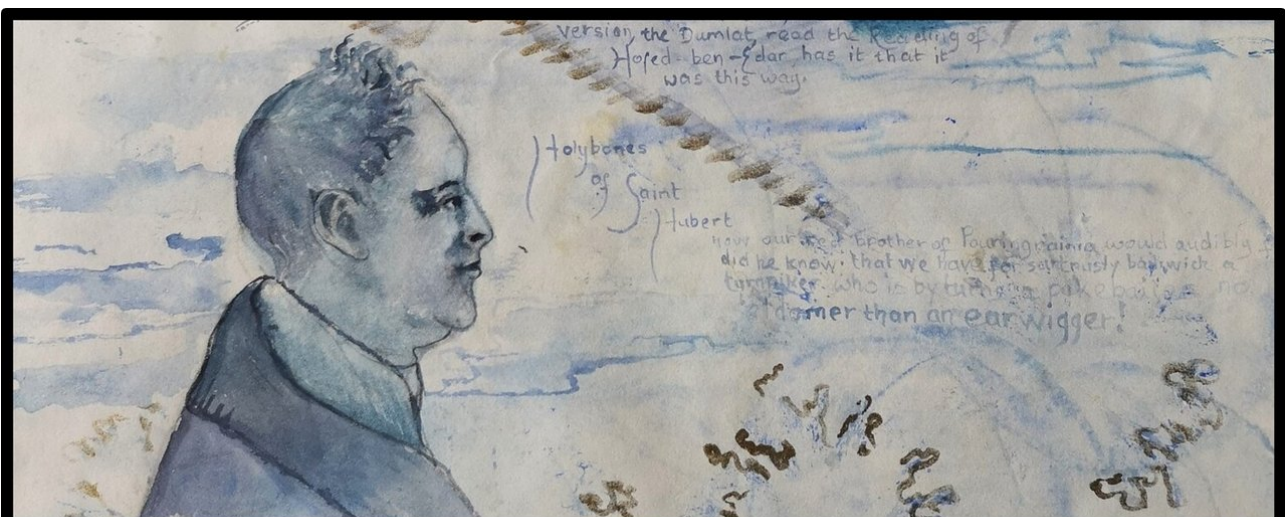 version, the Dumlat, read the Reading of
Hofed-ben-Edar, has it that it
was this way.
Holybones
of Saint
Hubert
how our red brother of Pouringrainia would audibly
did he know that we have for surtrusly bagwick a
turnpiker who is by turns a pikebailer no
than an earwigger!